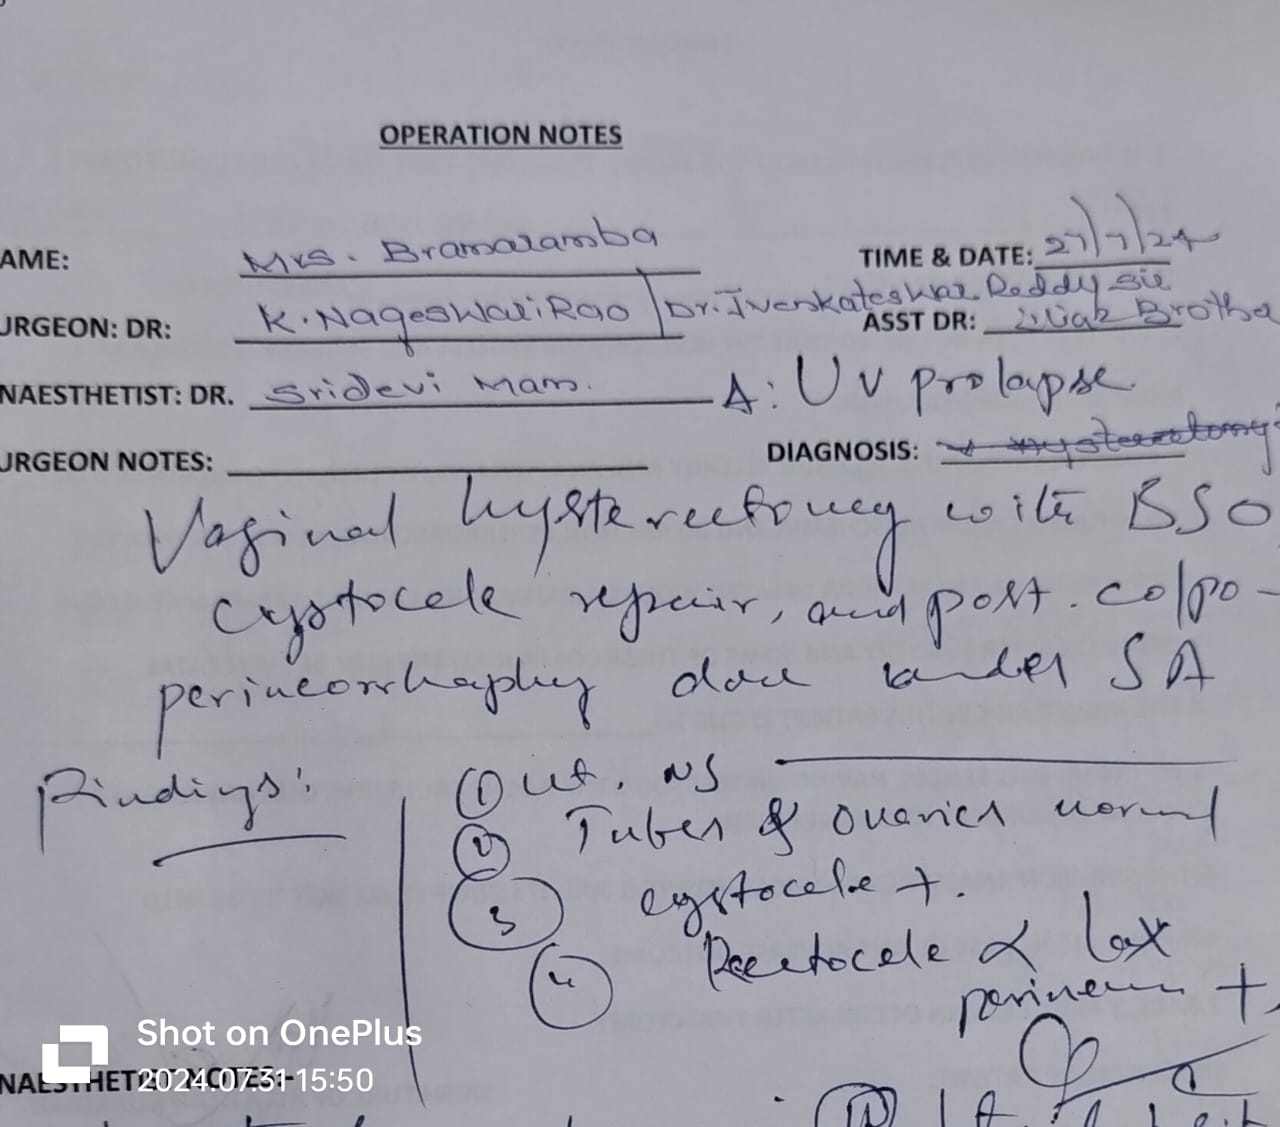 OPERATION NOTES
AME: Mrs. Bramaramba TIME & DATE: 27/7/24
URGEON: DR: K. Nageswari Rao / Dr. J venkateshwar Reddy sir
ASST DR: Brothe
NAESTHETIST: DR. Sridevi Mam. Δ: UV prolapse
URGEON NOTES: DIAGNOSIS: Hysterectomy
Vaginal hysterectomy with BSO
cystocele repair, and post. colpo-
perineorrhaphy done under SA
Findings: ① ut. NS
② Tubes & ovaries normal
③ cystocele +.
④ Rectocele & lax
perineum +
NAESTHETIST NOTES:-
Shot on OnePlus
2024.07.31 15:50